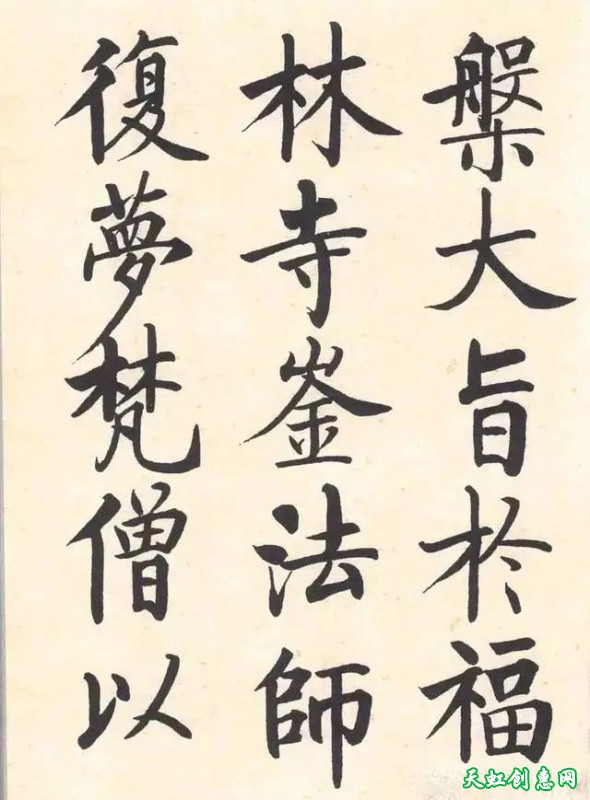 槃大旨於福
林寺崟法師
復夢梵僧以
天虹创意网